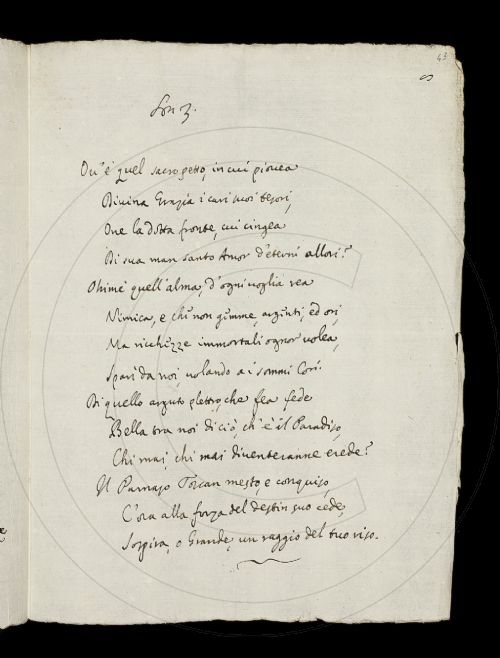 43
Son 3.
Ov'è quel sacro petto, in cui piovea
Divina Grazia i cari suoi tesori,
Ove la dotta fronte, cui cingea
Di sua man santo Amor d'eterni allori?
Ohimè quell'alma, d'ogni voglia rea
Nimica, e chi non gemme, argenti, ed ori,
Ma ricchezze immortali ognor volea,
Sparì da noi, volando a i sommi Cori.
Di quello arguto plettro, che fea fede
Bella tra noi di ciò, ch'è il Paradiso,
Chi mai, chi mai diventeranne erede?
Il Parnaso Toscan mesto, e conquiso,
C'ora alla forza del destin suo cede,
Sospira, o Grande, un raggio del tuo riso.